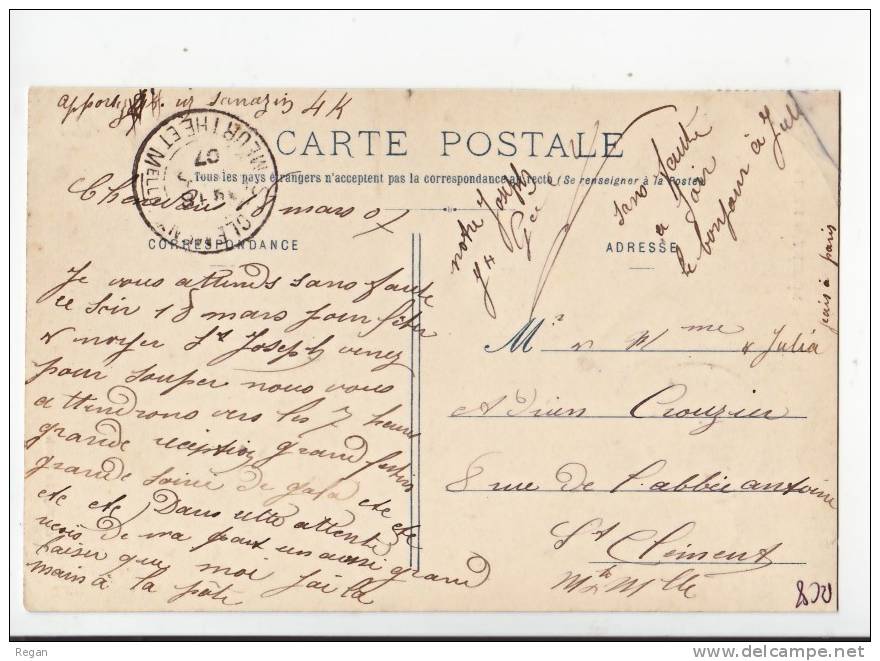 4K
CARTE POSTALE
Tous les pays étrangers n'acceptent pas la correspondance au recto (Se renseigner à la Poste)
MEURTHE ET MELLE
07
18 mars 07
CORRESPONDANCE
ADRESSE
Je vous attends sans faute
ce soir 18 mars pour fêter
& noyer St Joseph venez
pour souper nous vous
attendrons vers les 7 heures
grande réception grand festin
grande soirée de gala etc etc
etc etc Dans cette attente
de ma part un aussi grand
baiser que moi J'ai la
mains à la pâte
notre Joseph
sans faute
a
soir
le bonjour à Jul
pais à paris
Mr & Mme & Julia
Adrien Crouzier
8 rue de l'abbée antoine
St Clément
Mthe Mlle
820
Regan
www.delcampe.net